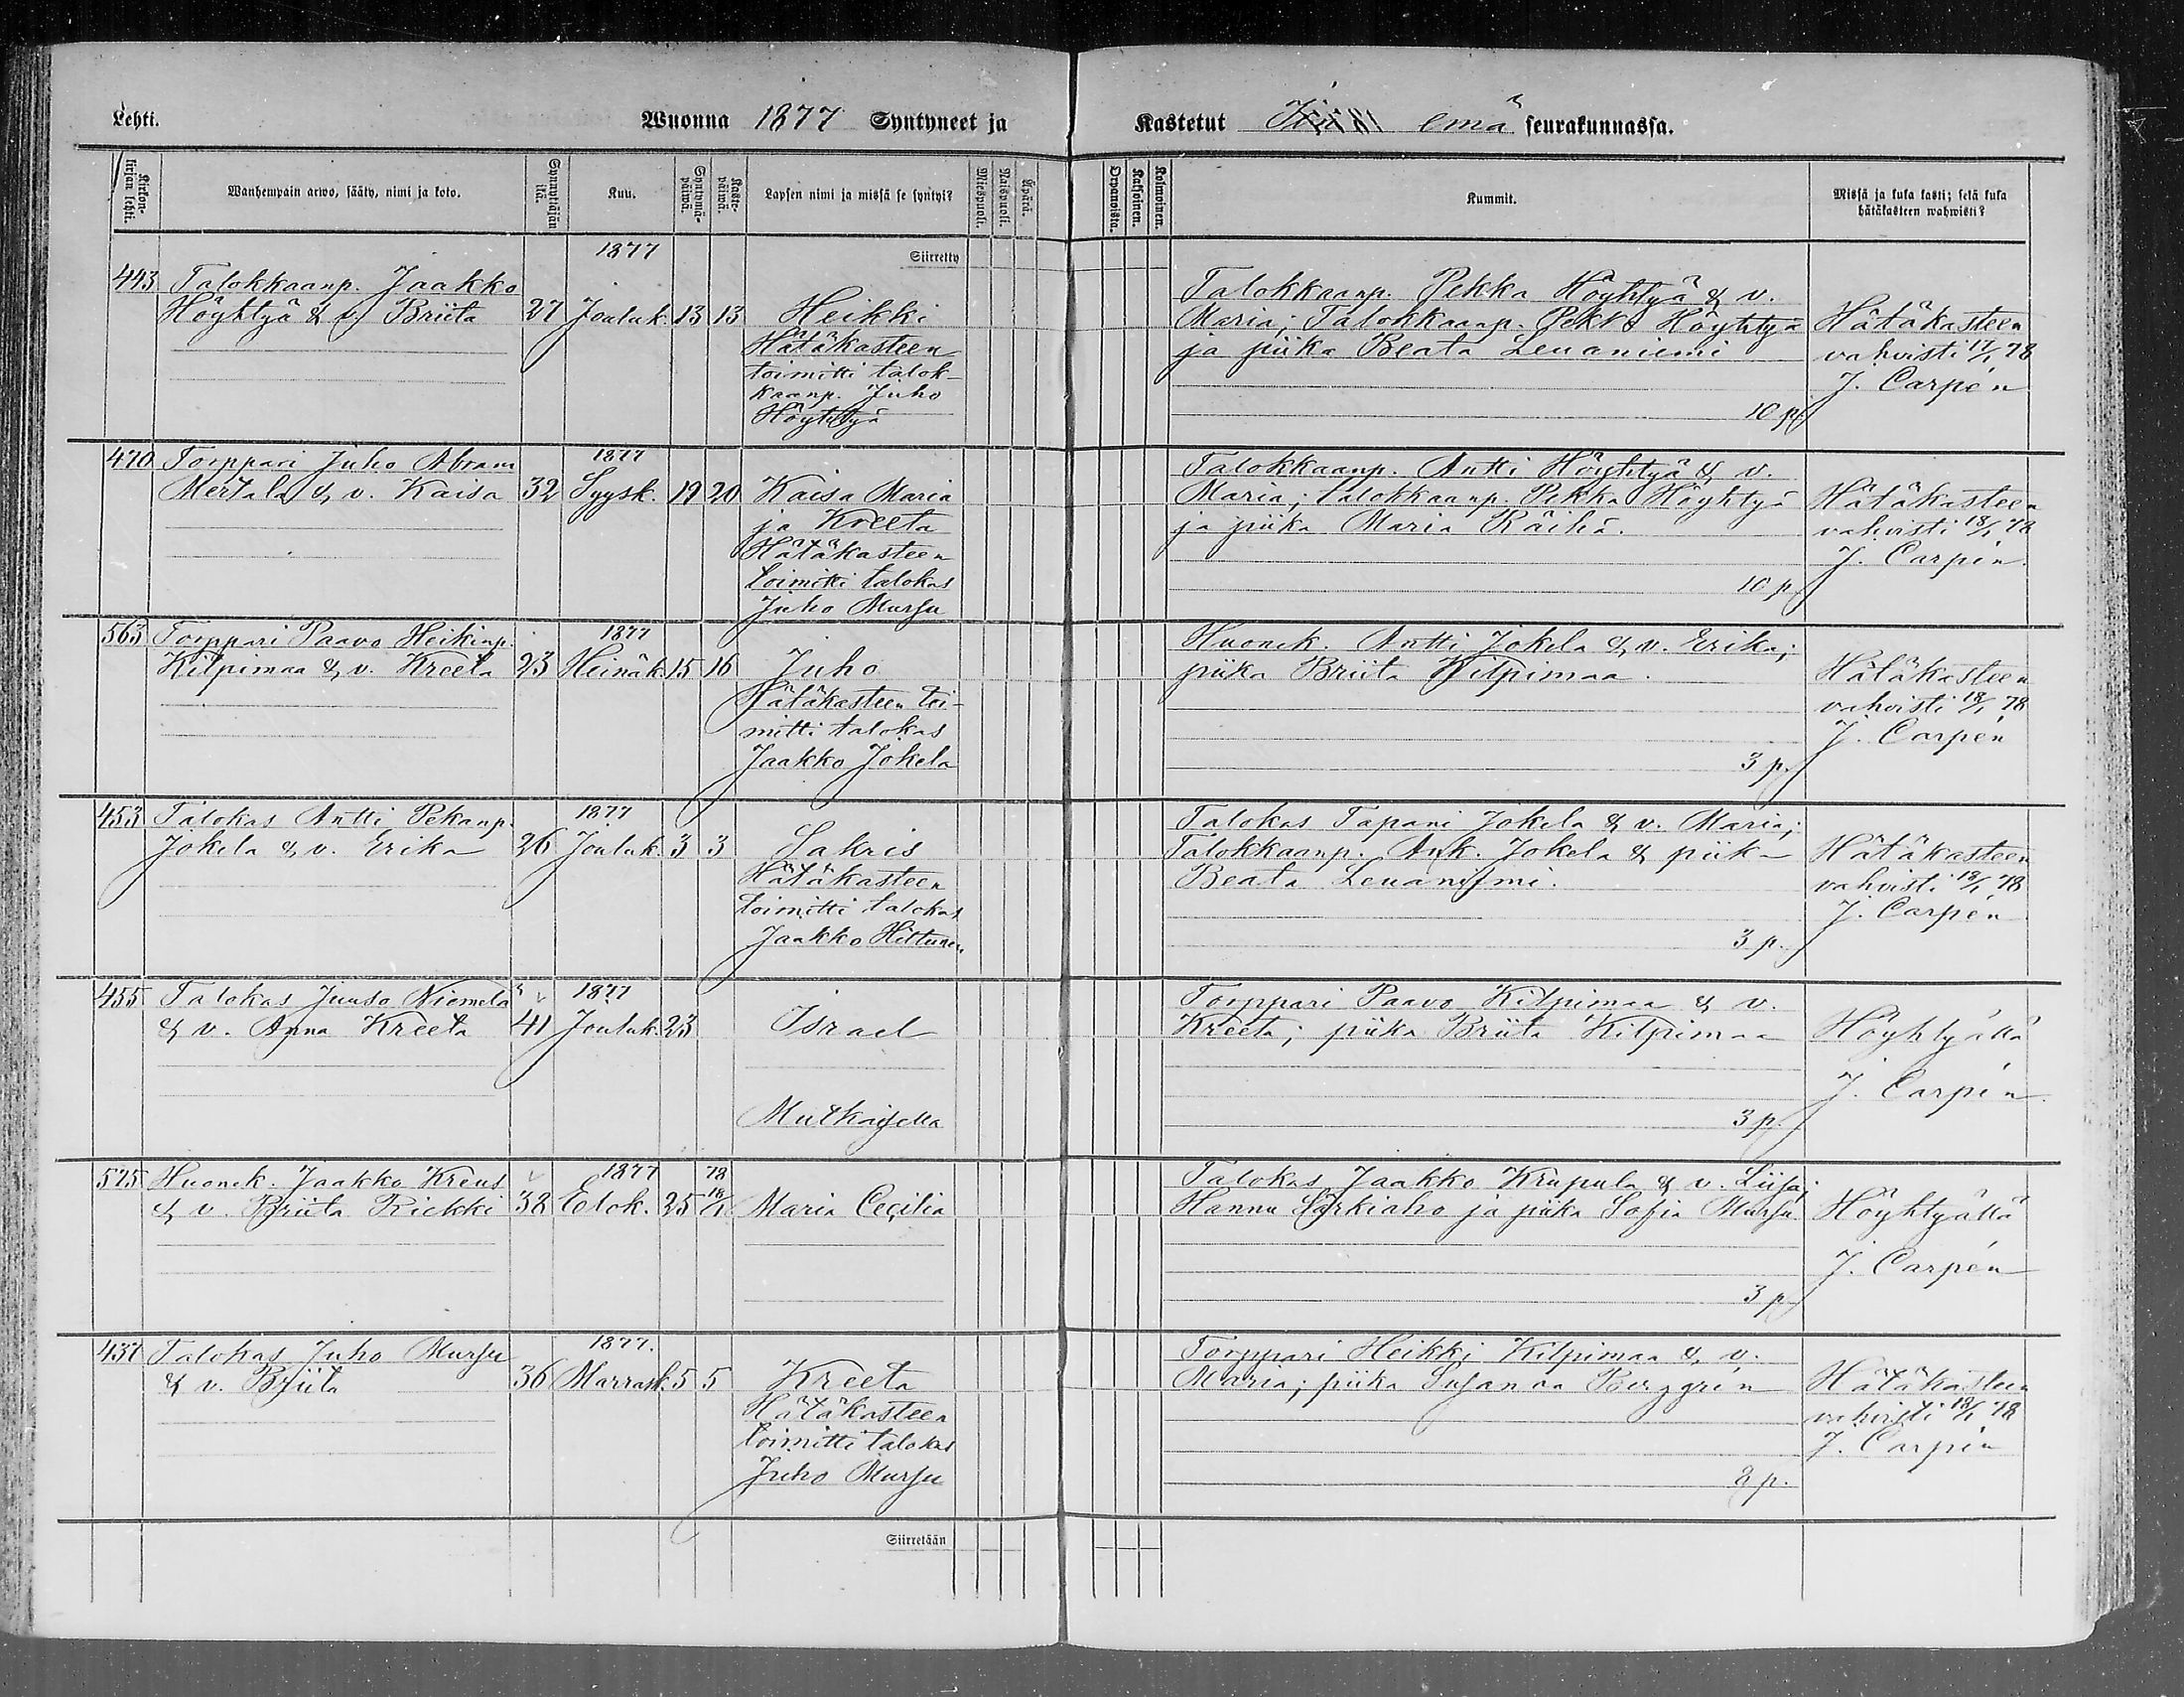 Lehti.
Wuonna 1877 Syntyneet ja
Kastetut emä seurakunnassa.
Kirkon-
kirjan lehti.
Wanhempain arwo, sääty, nimi ja koto.
Synnyttäjän
ikä.
Kuu.
Syntymä-
päiwä.
Kaste-
päiwä.
Lapsen nimi ja missä se syntyi?
Miespuoli.
Naispuoli.
Äpärä.
Orpanoista.
Kaksoinen.
Kolmoinen.
Kummit.
Missä ja kuka kasti; sekä kuka
hätäkasteen wahwisti?
1877
Siirretty
443 Talokkaanp. Jaakko
Höyhtyä & v. Briita 27 Jouluk. 13 13 Heikki
Hätäkasteen
toimitti talok-
kaanp. Juho
Höyhtyä
Talokkaanp. Pekka Höyhtyä & v.
Maria; Talokkaanp. Pekka Höyhtyä
ja piika Beata Leuaniemi
10 p.
Hätäkasteen
vahvisti 17/1 78
J. Carpén
470 Torppari Juho Abram 1877
Mertala & v. Kaisa 32 Syysk. 19 20 Kaisa Maria
ja Kreeta
Hätäkasteen
toimitti talokas
Juho Mursu
Talokkaanp. Antti Höyhtyä & v.
Maria; talokkaanp. Pekka Höyhtyä
ja piika Maria Räihä.
10 p
Hätäkasteen
vahvisti 18/1 78
J. Carpén.
563 Torppari Paavo Heikinp. 1877
Kilpimaa & v. Kreeta 23 Heinäk. 15 16 Juho
Hätäkasteen toi-
mitti talokas
Jaakko Jokela
Huonek. Antti Jokela & v. Erika;
piika Briita Kilpimaa.
3 p.
Hätäkasteen
vahvisti 18/1 78
J. Carpén
453 Talokas Antti Pekanp. 1877
Jokela & v. Erika 26 Jouluk. 3 3 Sakris
Hätäkasteen
toimitti talokas
Jaakko Hiltunen.
Talokas Tapani Jokela & v. Maria;
Talokkaanp. Ank. Jokela & piika
Beata Leuaniemi.
3 p.
Hätäkasteen
vahvisti 18/1 78
J. Carpén
455 Talokas Juuso Niemelä 1877
& v. Anna Kreeta 41 Jouluk. 23 Israel
Mutkaisella
Torppari Paavo Kilpimaa & v.
Kreeta; piika Briita Kilpimaa
3 p.
Höyhtyällä
J. Carpén.
575 Huonek. Jaakko Kreus 1877 78
& v. Briita Riekki 38 Elok. 25 18/1 Maria Cecilia
Talokas Jaakko Krupula & v. Liisa;
Hannu Särkiaho ja piika Sofia Mursu.
3 p.
Höyhtyällä
J. Carpén
437 Talokas Juho Mursu 1877.
& v. Briita 36 Marrask. 5 5 Kreeta
Hätäkasteen
toimitti talokas
Juho Mursu
Torppari Heikki Kilpimaa & v.
Maria; piika Susanna Berggrén
8 p.
Hätäkasteen
vahvisti 18/1 78
J. Carpén
Siirretään